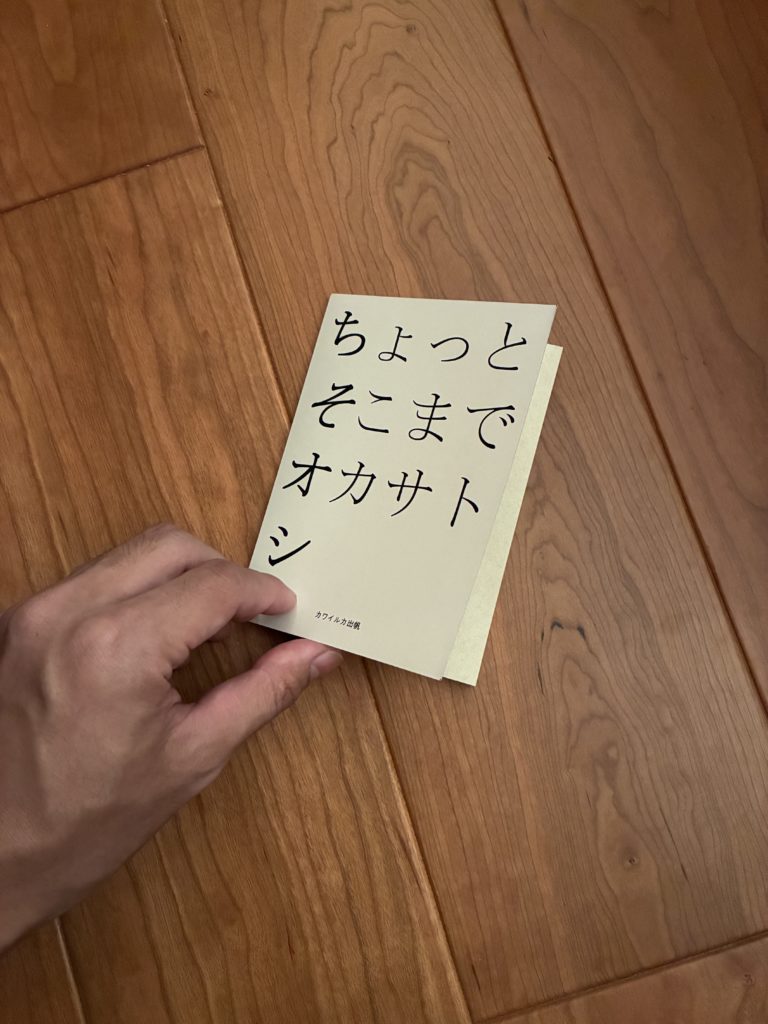 ちょっと
そこまで
オカサト
シ
カワイルカ出帆